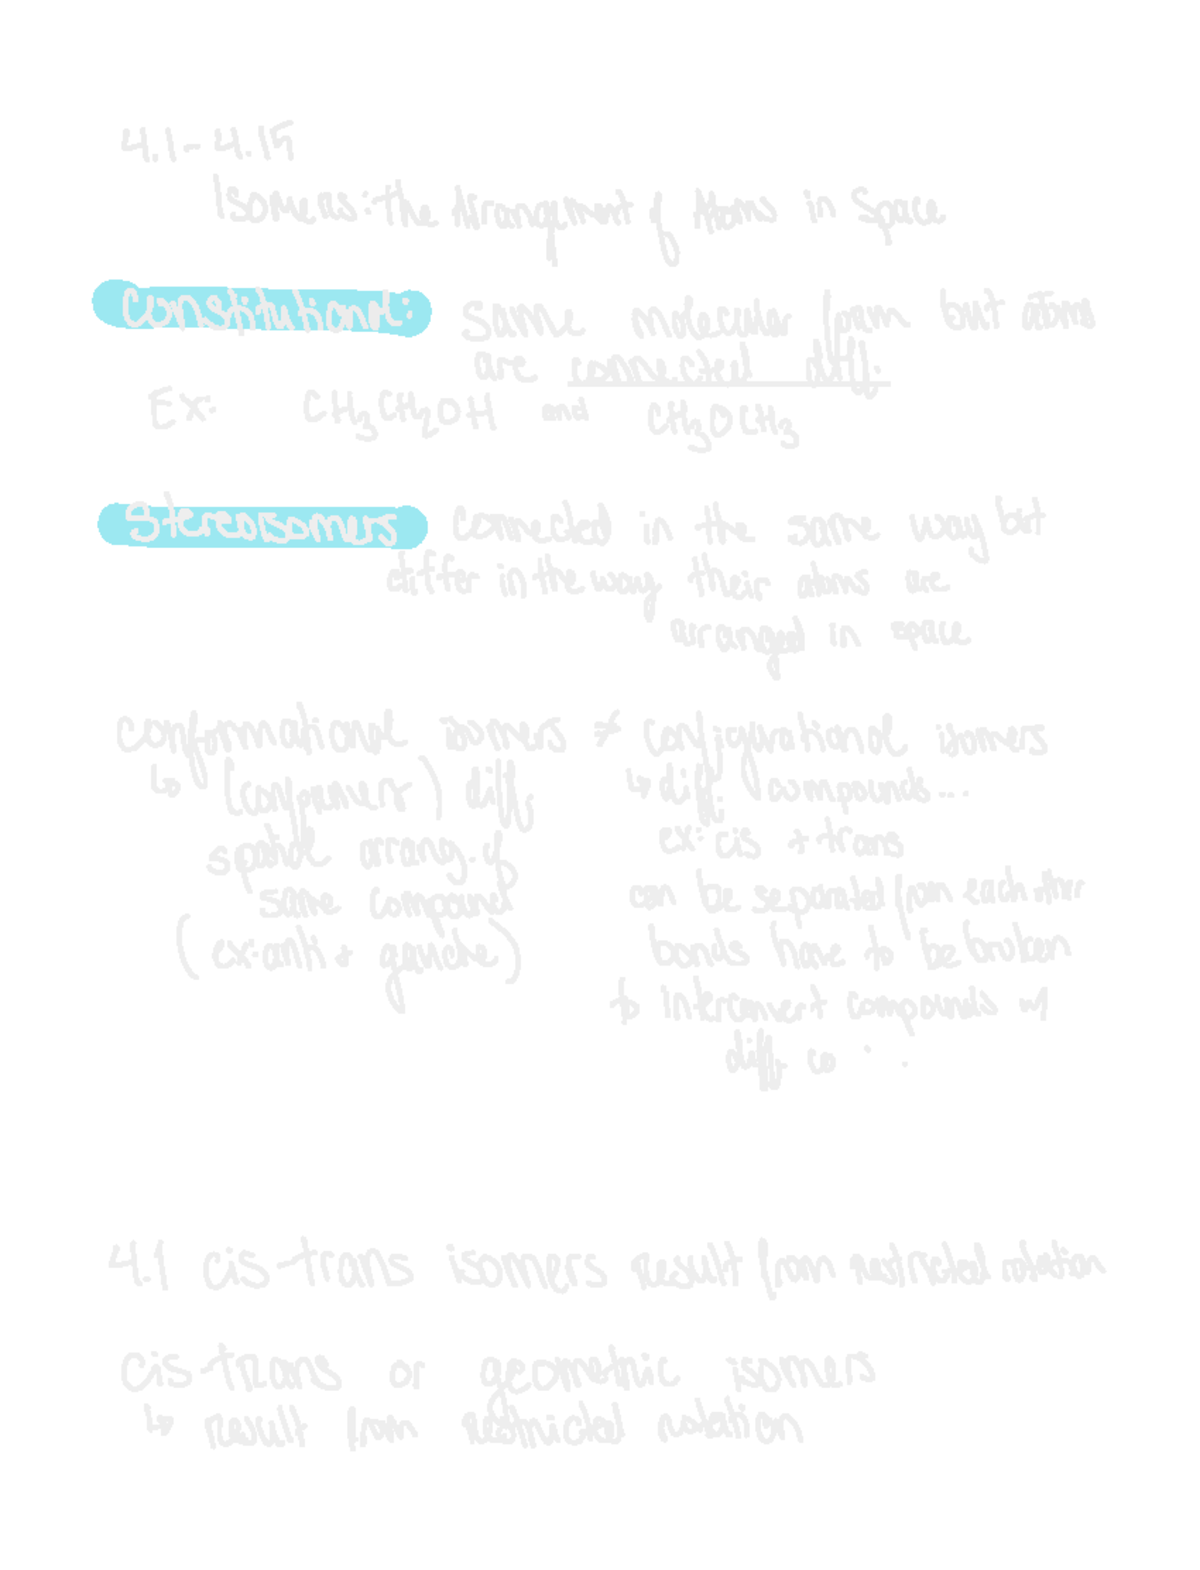 4.1-4.15
Isomers: the Arrangement of Atoms in Space
Constitutional: same molecular form but atoms
are connected diff.
Ex: CH₃CH₂OH and CH₃OCH₃
Stereoisomers connected in the same way but
differ in the way their atoms are
arranged in space
conformational isomers ≠ configurational isomers
↳ (conformers) diff
spatial arrang. of
same compound
(ex: anti + gauche)
↳ diff. compounds...
ex: cis + trans
can be separated from each other
bonds have to be broken
to interconvert compounds w/
diff. co
4.1 cis-trans isomers result from restricted rotation
cis-trans or geometric isomers
↳ result from restricted rotation